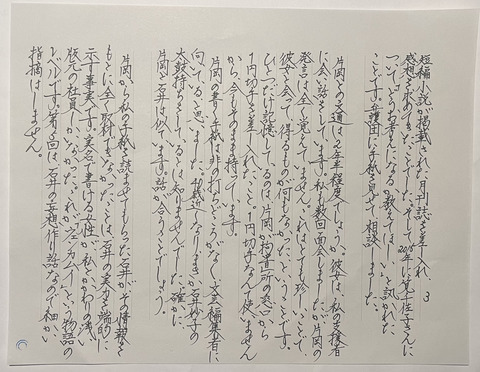 3
短編小説が掲載された月刊誌を差し入れ、
感想を求めてきたことでした。そして2015年に見十佳子さんに
ついてどうお考えになるか教えてほしい、と訊かれた
ことです。弁護団に手紙を見せて相談しました。
片岡との文通は2年半程度でしょうか。彼女は、私の支援者
に会い話をしています。私も数回面会しましたが、片岡の
発言は全く覚えていません。これはとても珍しいことで、
彼女と会って得るものが何もなかった、ということです。
ひとつだけ記憶しているのは、片岡が拘置所の窓口から
1円切手を差し入れたこと。1円切手なんて使いません
から、今もそのまま持っています。
片岡の書く手紙は非の打ちどころがなく、文芸編集者に
向いていると思いました。最近になりますが、石井妙子の
太鼓持ちをしているとは知りませんでした。確かに、
片岡と石井は似ています。話が合うことでしょう。
片岡から私の手紙を読ませてもらった石井が、その情報を
もとに全く取材をしなかったことは、石井の実力を端的に
示す事実です。実名で書ける女性が、私とかかわりの浅い
版元の社員しかいなかった。これが「ウェルカム・!」という物語の
レベルです。第5回は、石井の妄想作り話なので細かい
指摘はしません。